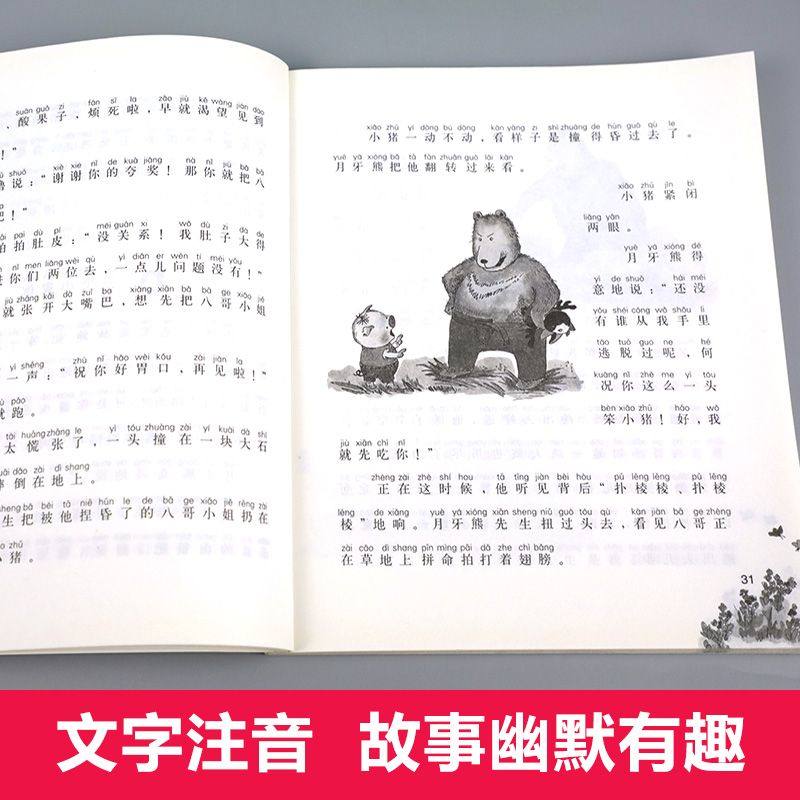 suān guǒ zi fán sǐ la zǎo jiù kě wàng jiàn dào
，酸果子，烦死啦，早就渴望见到
！”
shuō xiè xie nǐ de kuā jiǎng nà nǐ jiù bǎ bā
噜说：“谢谢你的夸奖！那你就把八
吧！”
pāi dù pí méi guān xi wǒ dù zi dà de
拍拍肚皮：“没关系！我肚子大得
jìn nǐ men liǎng wèi qù yì diǎn er wèn tí méi yǒu
进你们两位去，一点儿问题没有！”
jiù zhāng kāi dà zuǐ ba xiǎng xiān bǎ bā ge xiǎo jiě
就张开大嘴巴，想先把八哥小姐
yì shēng zhù nǐ hǎo wèi kǒu zài jiàn la
一声：“祝你好胃口，再见啦！”
jiù pǎo
就跑。
tài huāng zhāng le yì tóu zhuàng zài yí kuài dà shí
太慌张了，一头撞在一块大石
shuāi dǎo zài dì shang
摔倒在地上。
sheng bǎ bèi tā niē hūn le de bā ge xiǎo jiě rēng zài
生把被他捏昏了的八哥小姐扔在
xiǎo zhū
小猪。
xiǎo zhū yí dòng bú dòng kàn yàng zi shì zhuàng de hūn guò qù le
小猪一动不动，看样子是撞得昏过去了。
yuè yá xióng bǎ tā fān zhuǎn guò lái kàn
月牙熊把他翻转过来看。
xiǎo zhū jǐn bì
小猪紧闭
liǎng yǎn
两眼。
yuè yá xióng dé
月牙熊得
yì de shuō hái méi
意地说：“还没
yǒu shéi cóng wǒ shǒu li
有谁从我手里
táo tuō guo ne hé
逃脱过呢，何
kuàng nǐ zhè me yì tóu
况你这么一头
bèn xiǎo zhū hǎo wǒ
笨小猪！好，我
jiù xiān chī nǐ
就先吃你！”
zhèng zài zhè shí hou tā tīng jiàn bèi hòu pū lēng pū lēng
正在这时候，他听见背后“扑棱棱、扑棱
lēng de xiǎng yuè yá xióng xiān sheng niǔ guò tóu qù kàn jiàn bā ge zhèng
棱”地响。月牙熊先生扭过头去，看见八哥正
zài cǎo dì shang pīn mìng pāi dǎ zhe chì bǎng
在草地上拼命拍打着翅膀。
31
文字注音 故事幽默有趣